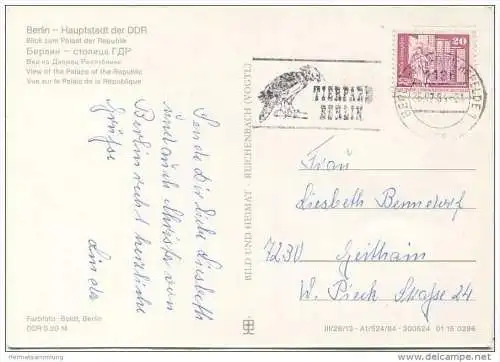 Berlin – Hauptstadt der DDR
Blick zum Palast der Republik
Берлин – столица ГДР
Вид на Дворец Республики
View of the Palace of the Republic
Vue sur le Palais de la République
Sende Dir liebe Liesbeth
und auch Christa von
Berlin recht herzliche
Grüße
Linda
Farbfoto: Boldt, Berlin
DDR 0.20 M
BILD UND HEIMAT · REICHENBACH (VOGTL)
TIERPARK
BERLIN
20
Frau
Liesbeth Benndorf
7230 Geithain
W. Pieck Straße 24
III/26/13 · A1/524/84 · 300524 01 15 0286
Heimatsammlung